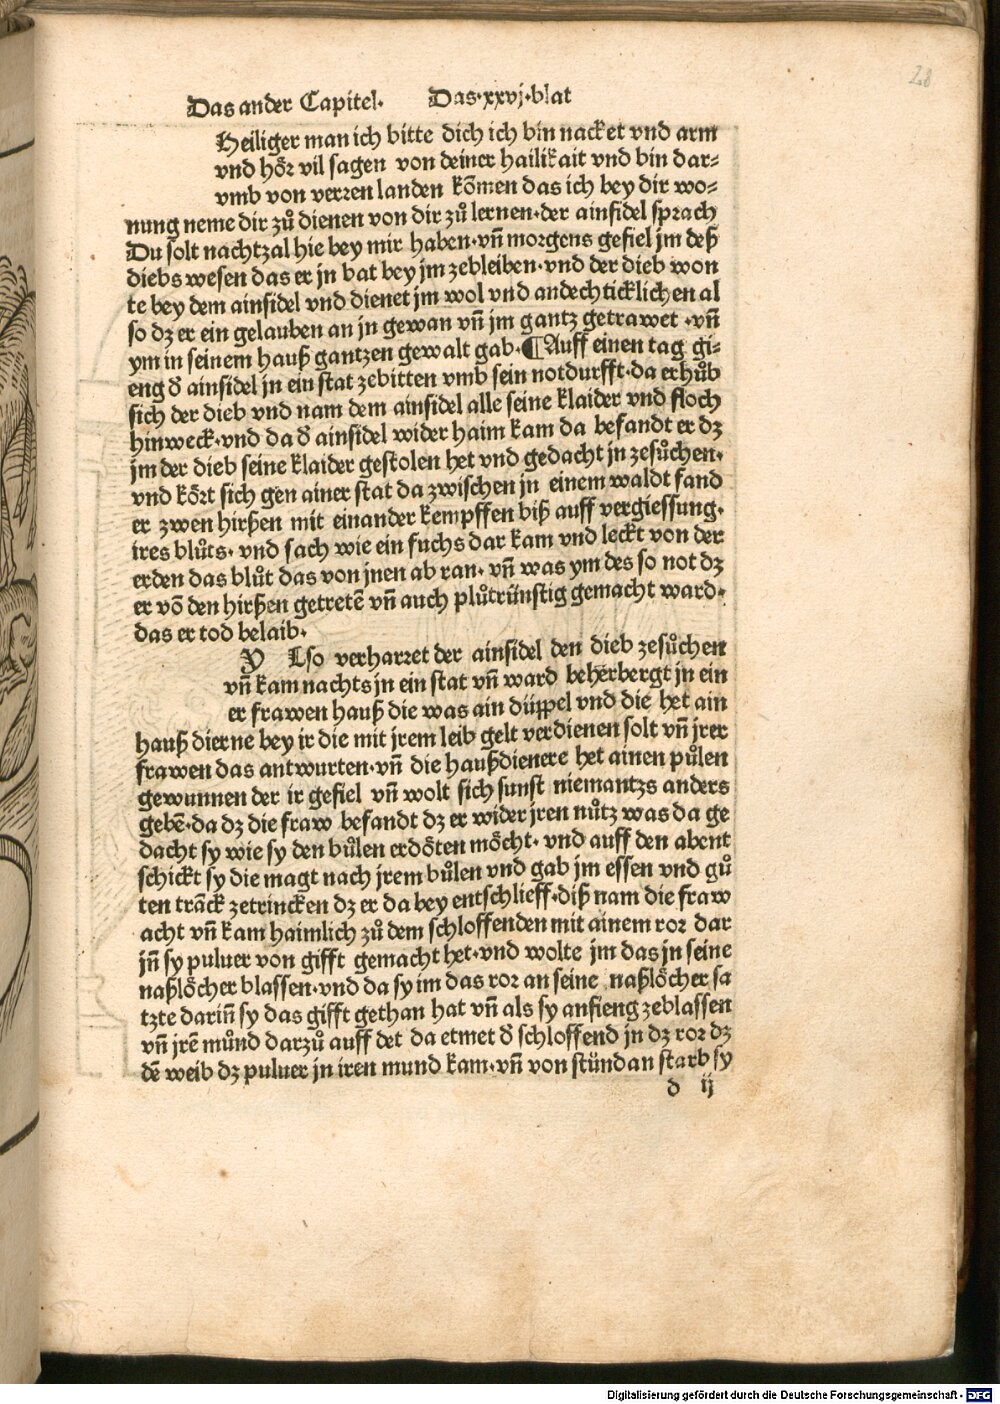 28
Das ander Capitel. Das·xxvj·blat
Heiliger man ich bitte dich ich bin nacket vnd arm
vnd hőr vil sagen von deiner hailikait vnd bin dar⸗
vmb von verren landen kõmen das ich bey dir wo⸗
nung neme dir zů dienen von dir zů lernen·der ainsidel sprach
Du solt nachtzal hie bey mir haben·vñ morgens gefiel jm deß
diebs wesen das er jn bat bey jm zebleiben·vnd der dieb won
te bey dem ainsidel vnd dienet jm wol vnd andechticklichen al
so dz er ein gelauben an jn gewan vñ jm gantz getrawet ·vñ
ym in seinem hauß gantzen gewalt gab·¶Auff einen tag gi⸗
eng ð ainsidel jn ein stat zebitten vmb sein notdurfft·da erhůb
sich der dieb vnd nam dem ainsidel alle seine klaider vnd floch
hinweck·vnd da ð ainsidel wider haim kam da befandt er dz
jm der dieb seine klaider gestolen het vnd gedacht jn zesůchen·
vnd kőrt sich gen ainer stat da zwischen jn einem waldt fand
er zwen hirßen mit einander kempffen biß auff vergiessung·
ires blůts· vnd sach wie ein fuchs dar kam vnd leckt von der
erden das blůt das von jnen ab ran· vñ was ym des so not dz
er võ den hirßen getretẽ vñ auch plůtrünstig gemacht ward·
das er tod belaib·
Y Lso verharret der ainsidel den dieb zesůchen
vñ kam nachts jn ein stat vñ ward beherbergt jn ein
er frawen hauß die was ain düppel vnd die het ain
hauß dierne bey ir die mit jrem leib gelt verdienen solt vñ jrer
frawen das antwurten·vñ die haußdienere het ainen půlen
gewunnen der ir gefiel vñ wolt sich sunst niemantzs anders
gebẽ·da dz die fraw befandt dz er wider jren nůtz was da ge
dacht sy wie sy den bůlen erdőten mőcht· vnd auff den abent
schickt sy die magt nach jrem bůlen vnd gab jm essen vnd gů
ten trãck zetrincken dz er da bey entschlieff·diß nam die fraw
acht vñ kam haimlich zů dem schloffenden mit ainem ror dar
jñ sy puluer von gifft gemacht het·vnd wolte jm das jn seine
naßlőcher blassen·vnd da sy im das ror an seine naßlőcher sa
tzte dariñ sy das gifft gethan hat vñ als sy anfieng zeblassen
vñ jrẽ můnd darzů auff det da etmet ð schloffend jn dz ror dz
dẽ weib dz puluer jn iren mund kam·vñ von stünd an starb sy
d ij
Digitalisierung gefördert durch die Deutsche Forschungsgemeinschaft - DFG